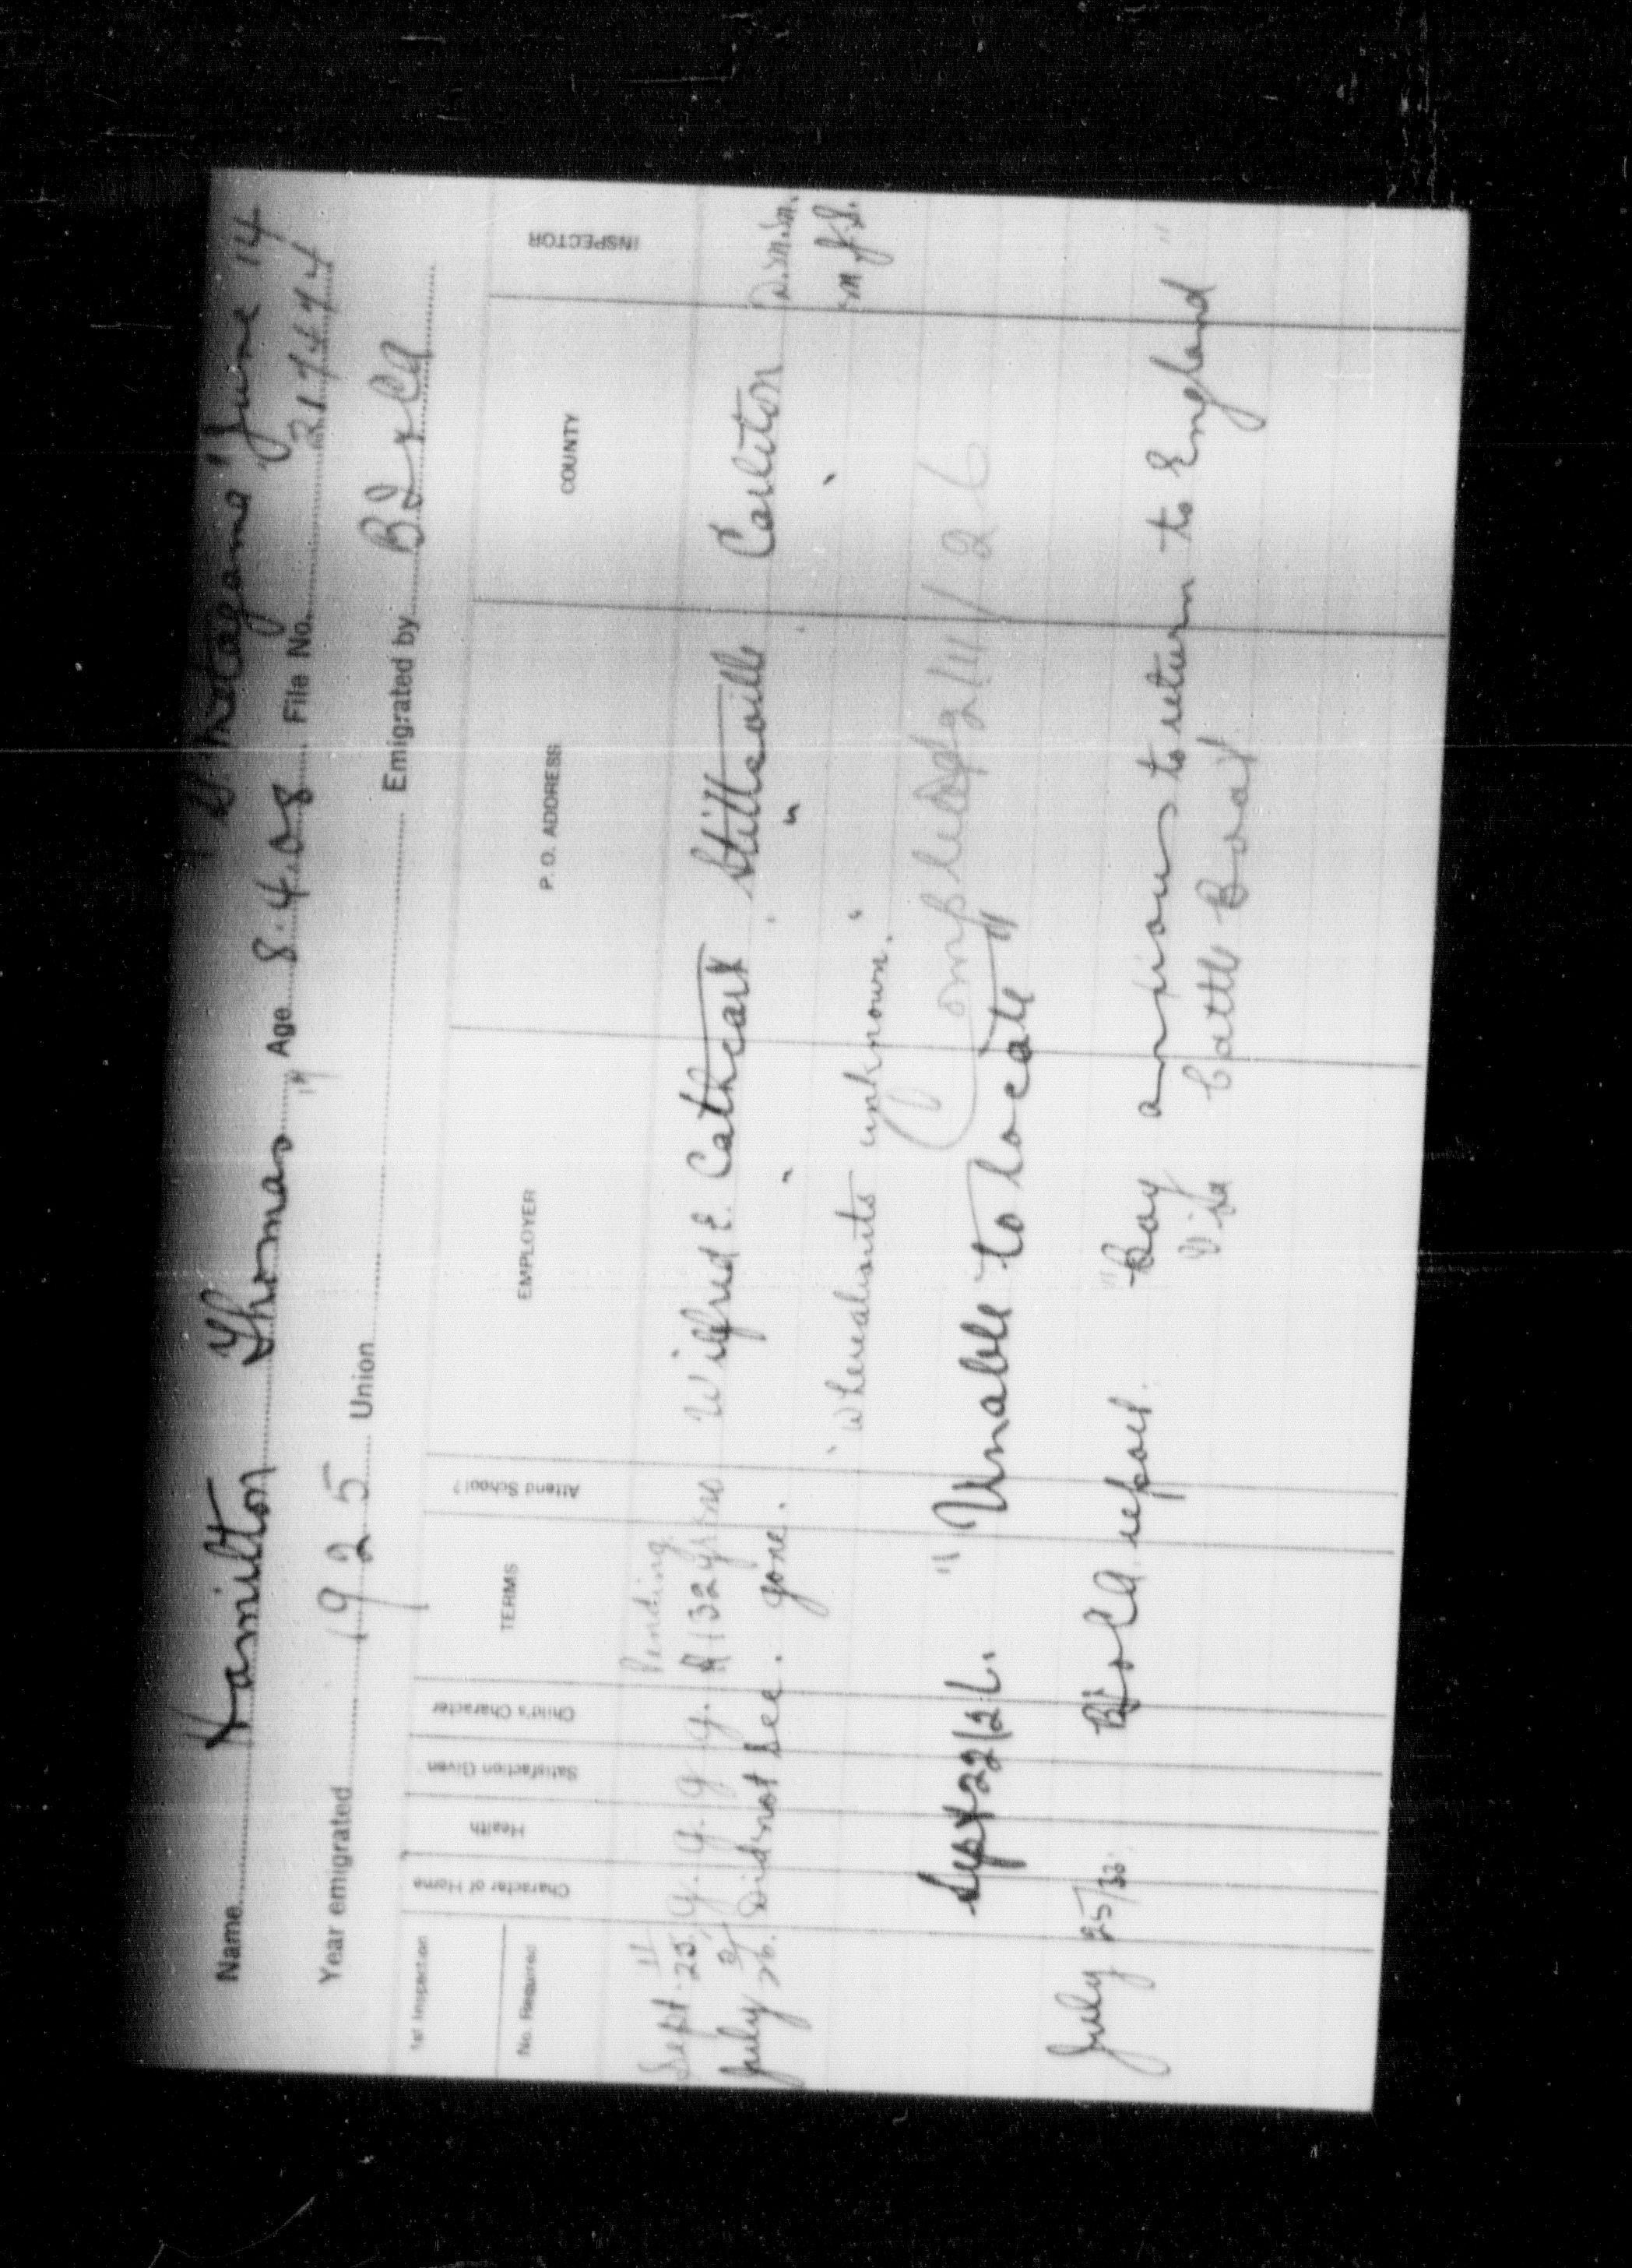 "Metagama" June 14
Name Hamilton Thomas 17 Age 8.4.08 File No.
Year emigrated 1925 Union Emigrated by BI & CA
1st Inspection
No. Required
Character of Home
Health
Satisfaction Given
Child's Character
TERMS
Attend School?
EMPLOYER
P.O. ADDRESS
COUNTY
INSPECTOR
Pending
Sept. 11 25. g. g. g. g. Wilfred E. Cathcart Stittsville Carleton D.M.M.
July 26. Did not see. gone. " " " M.J.S.
" Whereabouts unknown. "
Completed 2/4/26
Sept 22/26. " Unable to locate "
July 25/33. BI & CA report. "Boy anxious to return to England "
Via Cattle Boat